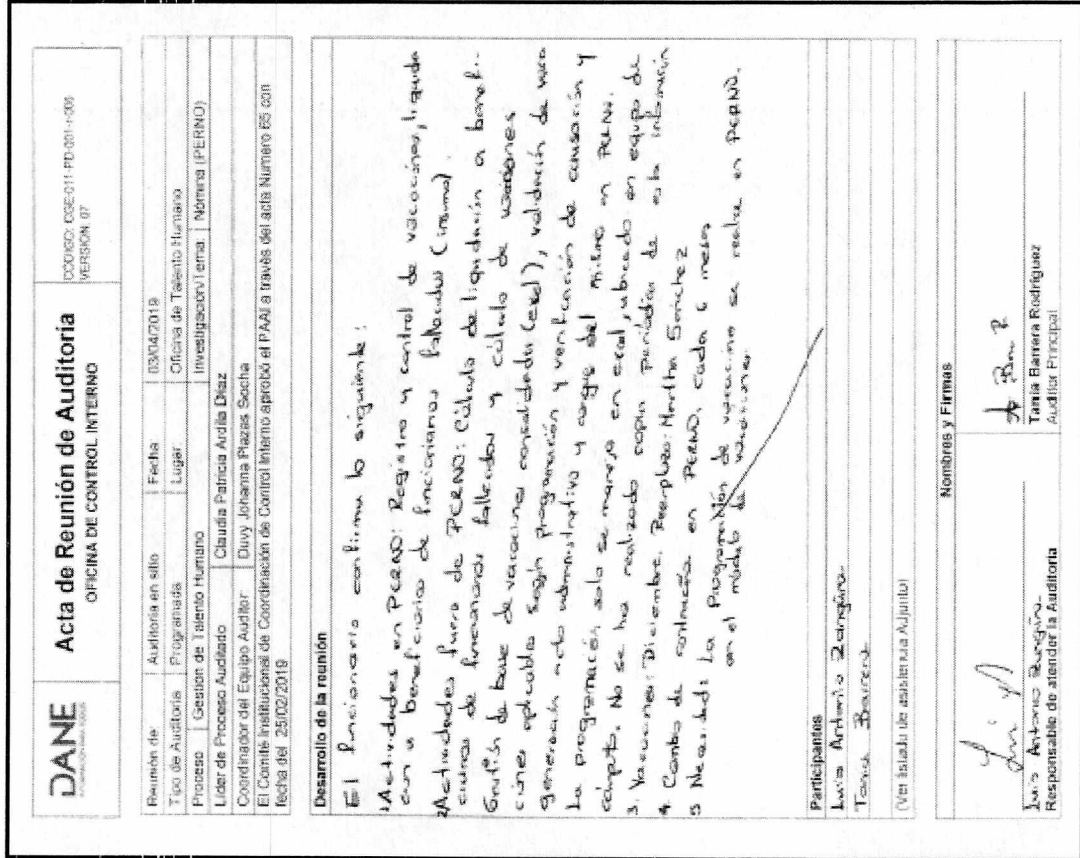 DANE
INFORMACIÓN PARA TODOS
Acta de Reunión de Auditoria
OFICINA DE CONTROL INTERNO
CODIGO: CGE-011-PD-001-f-005
VERSIÓN: 07
Reunión de: Auditoria en sitio Fecha 03/04/2019
Tipo de Auditoria Programada Lugar: Oficina de Talento Humano
Proceso Gestión de Talento Humano Investigación/Tema: Nómina (PERNO)
Líder de Proceso Auditado Claudia Patricia Ardila Díaz
Coordinador del Equipo Auditor Duvy Johanna Plazas Socha
El Comité Institucional de Coordinación de Control Interno aprobó el PAAI a través del acta Numero 65 con
fecha del 25/02/2019
Desarrollo de la reunión
El funcionario confirma lo siguiente:
1 Actividades en PERNO: Registro y control de vacaciones, liquida
cion a beneficiario de funcionarios fallecidos (insumo).
2 Actividades fuera de PERNO: Cálculo de liquidación a benefi-
ciarios de funcionarios fallecidos y cálculo de vacaciones
de base de vacaciones consolidados (excel), validación de vaca
ciones aplicables según programación y verificación de causación y
generación acto administrativo y cargue del mismo en PERNO.
La programación solo se maneja en excel, ubicado en equipo de
cómputo. No se ha realizado copia periódica de esta información
3. Vacaciones: Diciembre. Reemplazo: Martha Sanchez
4. Cambio de contraseña en PERNO, cada 6 meses
5 Necesidad: La Programación de vacaciones se realice en PERNO,
en el módulo de vacaciones
Participantes
Luis Antonio Zangüña.
Tania Barrera
(Ver listado de asistencia Adjunto)
Nombres y Firmas
Luis Antonio
Responsable de atender la Auditoria
Tania Barrera Rodríguez
Auditor Principal